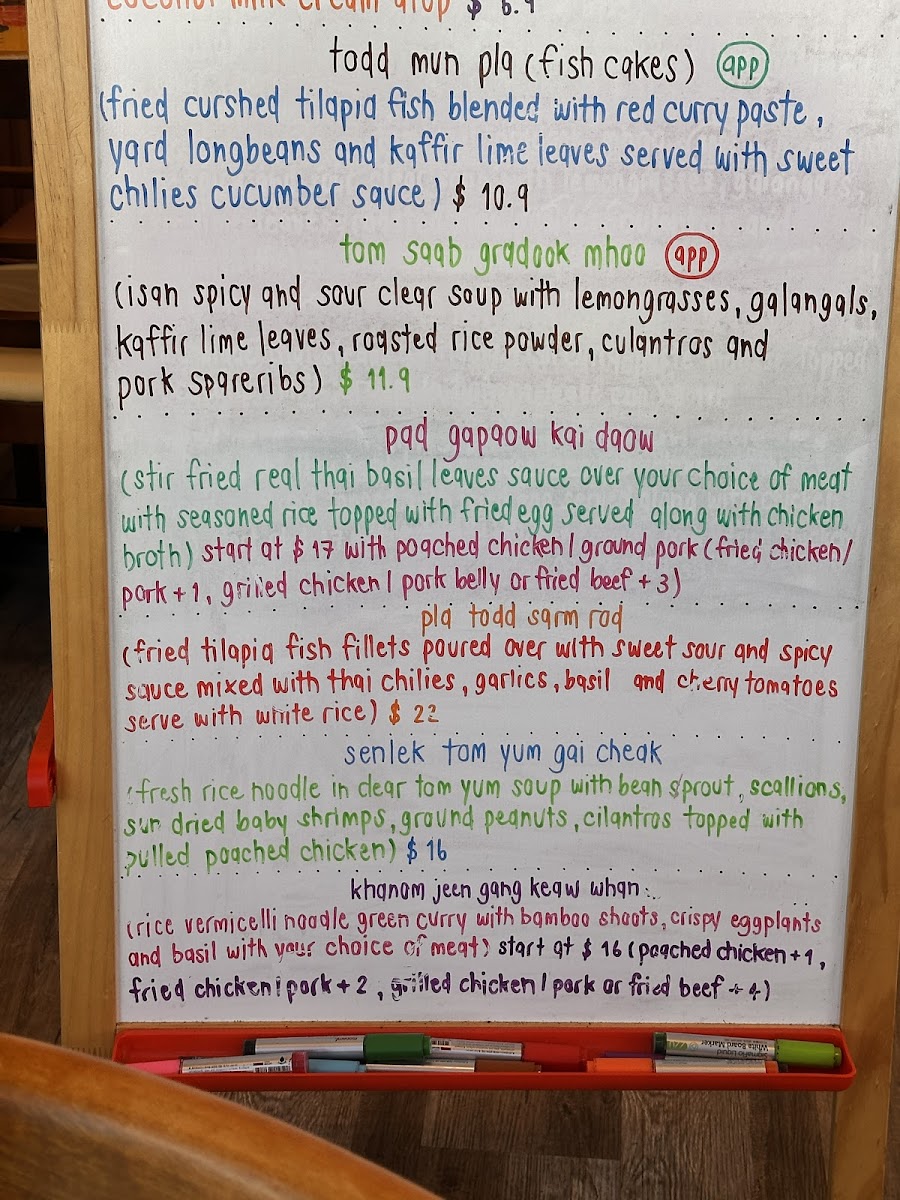 coconut milk cream drop $ 6.9
todd mun pla (fish cakes) app
(fried curshed tilapia fish blended with red curry paste,
yard longbeans and kaffir lime leaves served with sweet
chilies cucumber sauce) $ 10.9
tom saab gradook mhoo app
(isan spicy and sour clear soup with lemongrasses, galangals,
kaffir lime leaves, roasted rice powder, culantros and
pork spareribs) $ 11.9
pad gapaow kai daow
(stir fried real thai basil leaves sauce over your choice of meat
with seasoned rice topped with fried egg served along with chicken
broth) start at $ 17 with poached chicken / ground pork (fried chicken /
pork + 1, grilled chicken / pork belly or fried beef + 3)
pla todd sarm rod
(fried tilapia fish fillets poured over with sweet sour and spicy
sauce mixed with thai chilies, garlics, basil and cherry tomatoes
serve with white rice) $ 22
senlek tom yum gai cheak
(fresh rice noodle in clear tom yum soup with bean sprout, scallions,
sun dried baby shrimps, ground peanuts, cilantros topped with
pulled poached chicken) $ 16
khanom jeen gang keaw whan
(rice vermicelli noodle green curry with bamboo shoots, crispy eggplants
and basil with your choice of meat) start at $ 16 (poached chicken + 1,
fried chicken / pork + 2, grilled chicken / pork or fried beef + 4)
White Board Marker